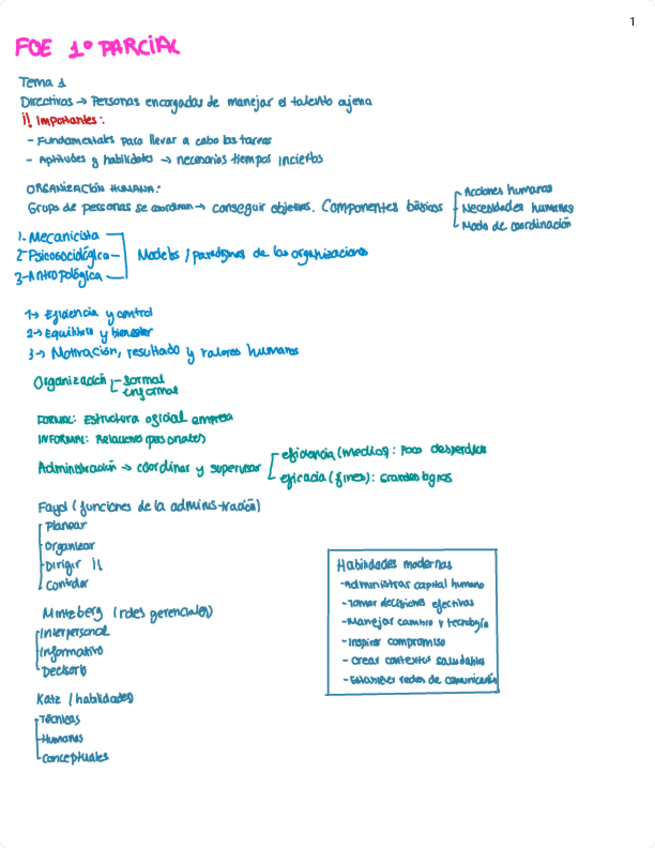 1
FOE 1º PARCIAL
Tema 1
Directivos → Personas encargadas de manejar el talento ajeno
¡! Importantes:
- Fundamentales para llevar a cabo las tareas
- Aptitudes y habilidades → necesarios tiempos inciertos
ORGANIZACIÓN HUMANA:
Grupo de personas se coordinan → conseguir objetivos. Componentes básicos
Acciones humanas
Necesidades humanas
Modo de coordinación
1- Mecanicista
2- Psicosociológica
3- Antropológica
Modelos / paradigmas de las organizaciones
1→ Eficiencia y control
2→ Equilibrio y bienestar
3→ Motivación, resultado y valores humanos
Organización
formal
informal
FORMAL: Estructura oficial empresa
INFORMAL: Relaciones (personales)
Administración → coordinar y supervisar
eficiencia (medios): Poco desperdicio
eficacia (fines): Grandes logros
Fayol (funciones de la administración)
Planear
Organizar
Dirigir ¡!
Controlar
Mintzberg (roles gerenciales)
Interpersonal
Informativo
Decisorio
Katz (habilidades)
Técnicas
Humanas
Conceptuales
Habilidades modernas
- Administrar capital humano
- Tomar decisiones efectivas
- Manejar cambio y tecnología
- Inspirar compromiso
- Crear contextos saludables
- Establecer redes de comunicación